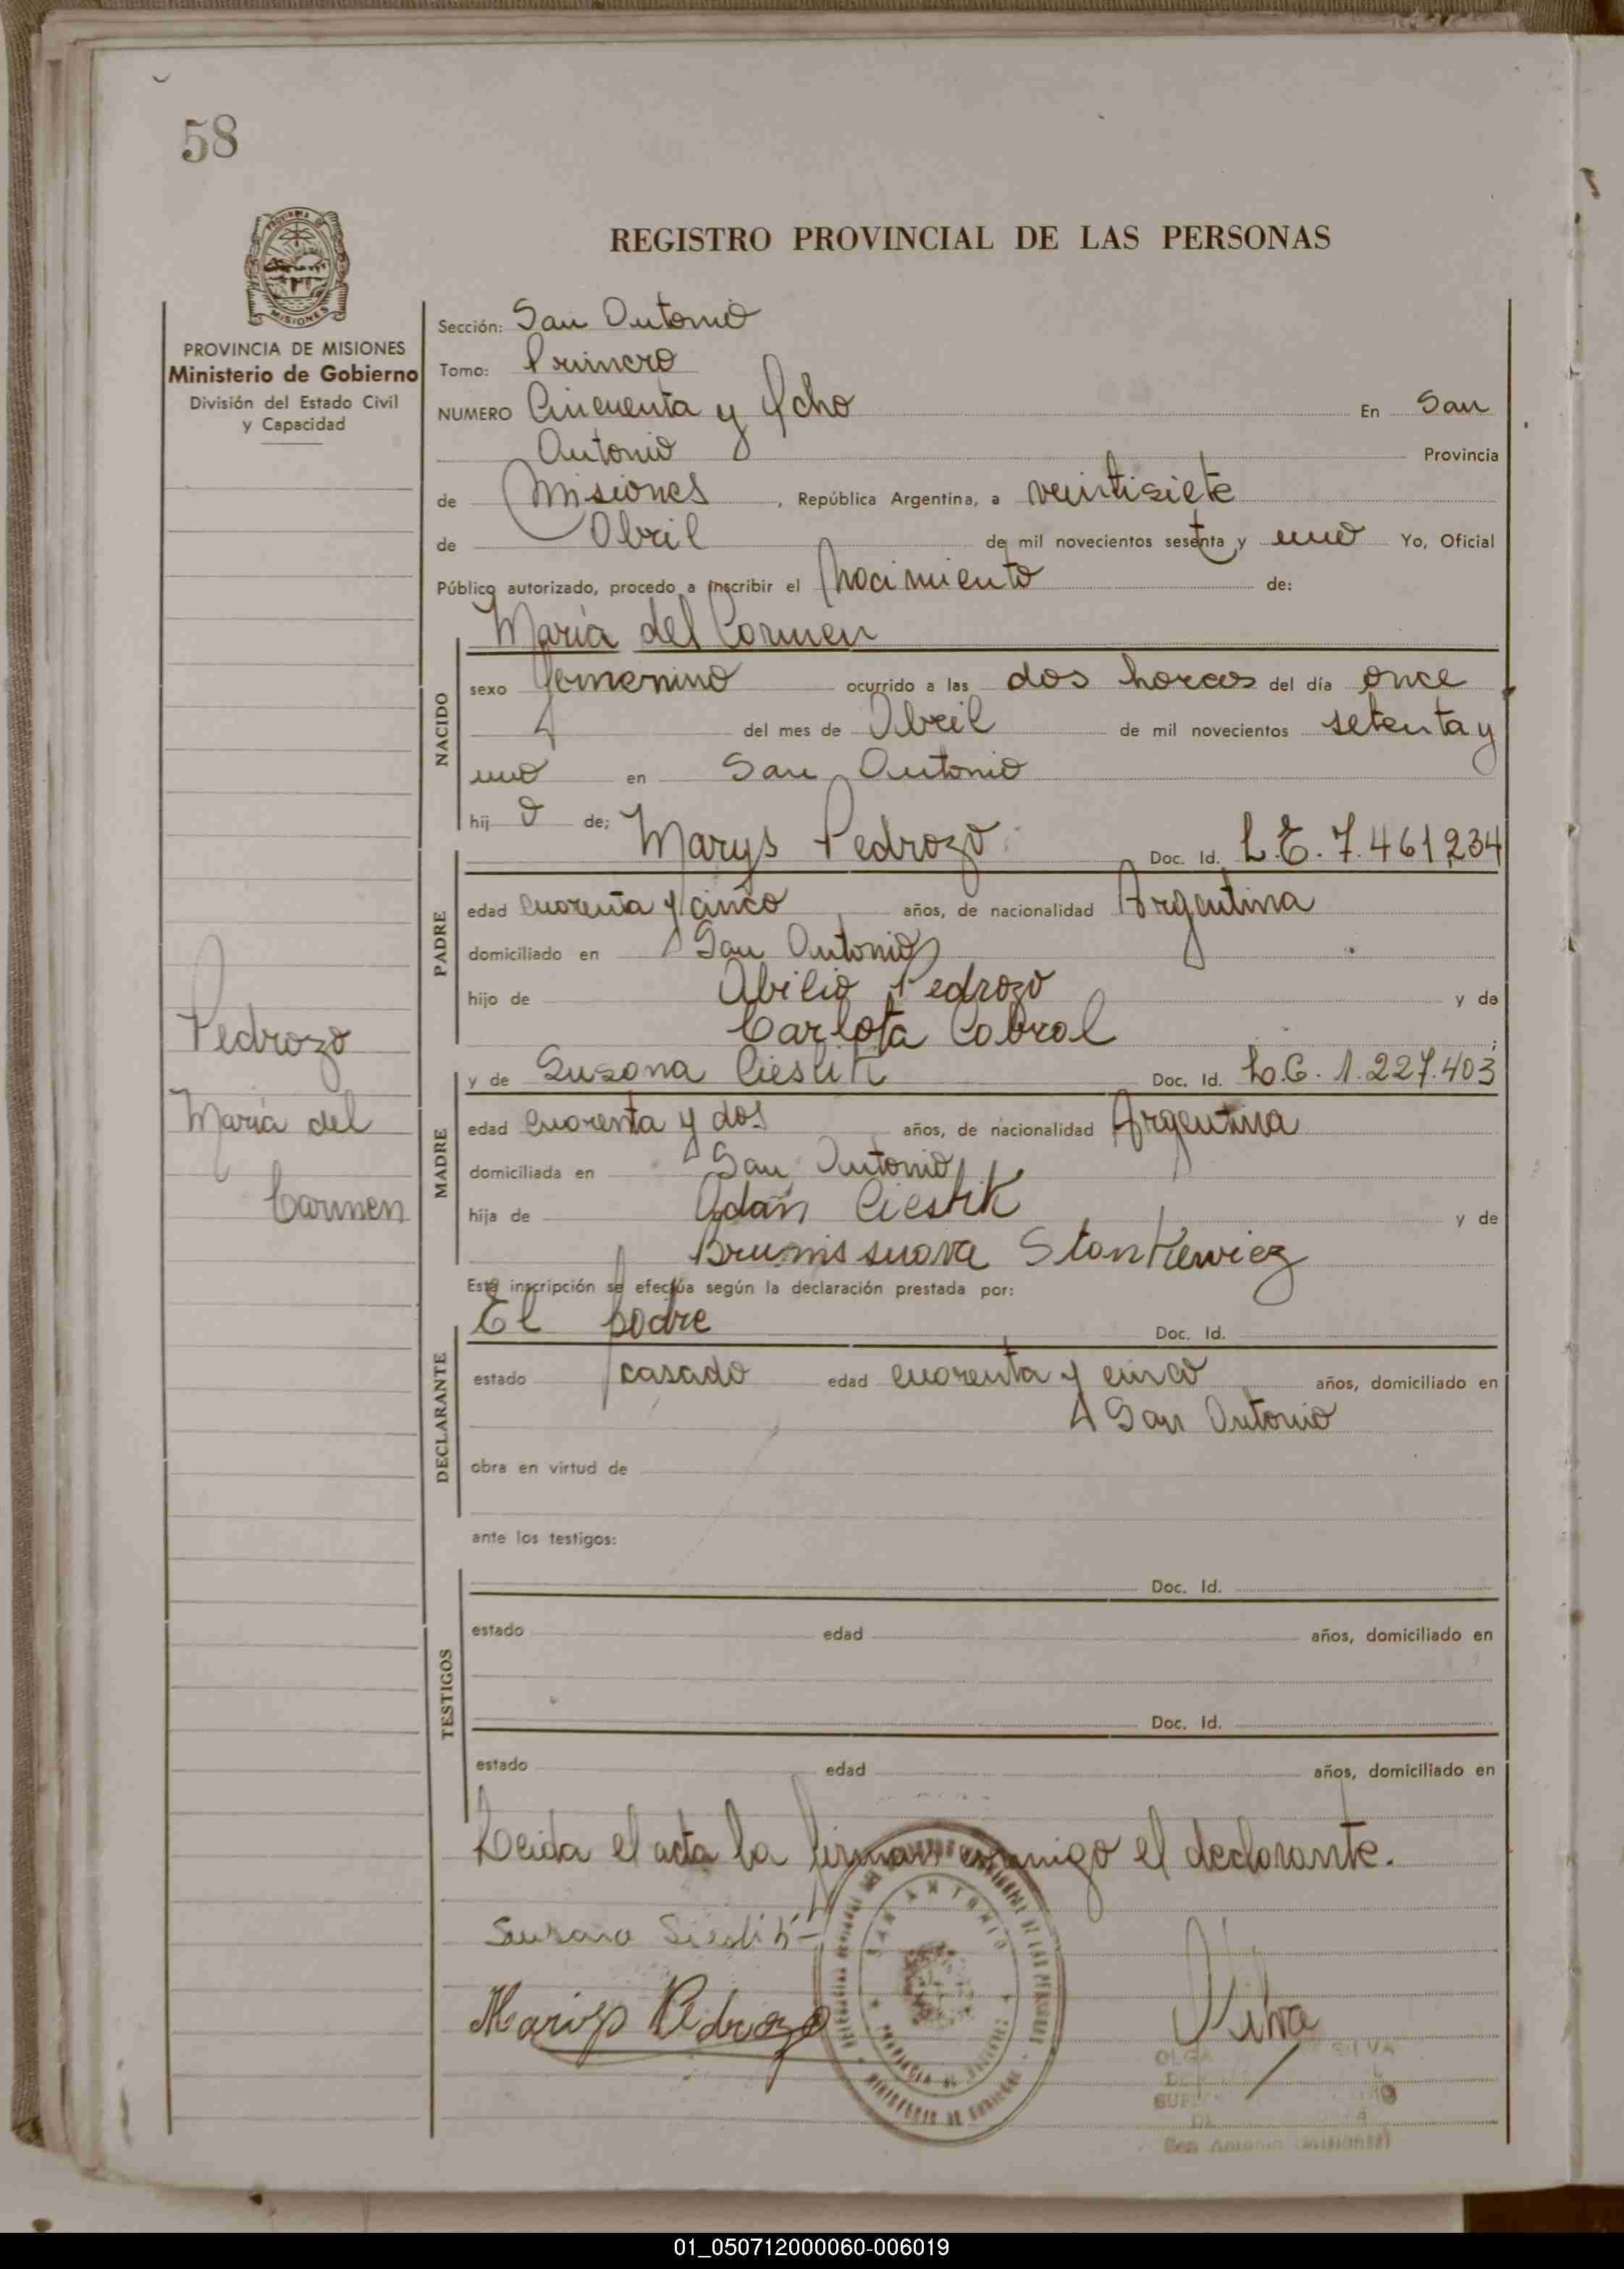 58
REGISTRO PROVINCIAL DE LAS PERSONAS
PROVINCIA DE
MISIONES
PROVINCIA DE MISIONES
Ministerio de Gobierno
División del Estado Civil
y Capacidad
Sección: San Antonio
Tomo: Primero
NUMERO Cincuenta y Ocho En San
Antonio Provincia
de Misiones, República Argentina, a veintisiete
de Abril de mil novecientos sesenta y uno Yo, Oficial
Público autorizado, procedo a inscribir el Nacimiento de:
María del Carmen
NACIDO
sexo femenino ocurrido a las dos horas del día once
del mes de Abril de mil novecientos setenta y
uno en San Antonio
hij a de; Marys Pedrozo Doc. Id. L.E. 7.461,234
PADRE
edad cuarenta y cinco años, de nacionalidad Argentina
domiciliado en San Antonio
hijo de Abilio Pedrozo y de
Carlota Cabral ;
y de Susana Cieslik Doc. Id. L.C. 1.227.403
MADRE
edad cuarenta y dos años, de nacionalidad Argentina
domiciliada en San Antonio
hija de Adán Cieslik y de
Stankiewicz
Esta inscripción se efectúa según la declaración prestada por:
El padre Doc. Id.
DECLARANTE
estado casado edad cuarenta y cinco años, domiciliado en
San Antonio
obra en virtud de
ante los testigos:
Doc. Id.
TESTIGOS
estado edad años, domiciliado en
Doc. Id.
estado edad años, domiciliado en
Leida el acta la firman conmigo el declarante.
Susana Sieslik
Marys Pedrozo
Silva
SAN ANTONIO
OLGA SILVA
San Antonio (Misiones)
Pedrozo
María del
Carmen
01_050712000060-006019